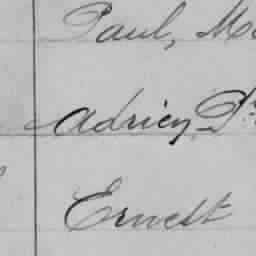 Paul, M
Adrien D
Ernest